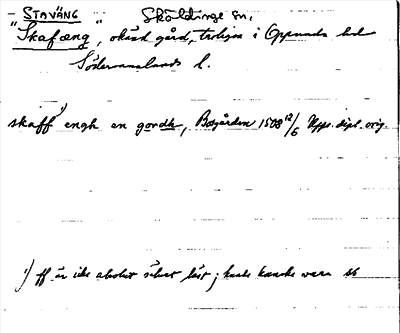 - STAVÄNG   Sköldinge sn.
"Skafæng", okänd gård, troligen i Oppunda hd
Södermanlands l.
skaff¹⁾ engh en gordh, Bogården 1508 12/6 Upps. dipl. orig.
¹⁾ ff är icke absolut säkert läst; kunde kanske vara st